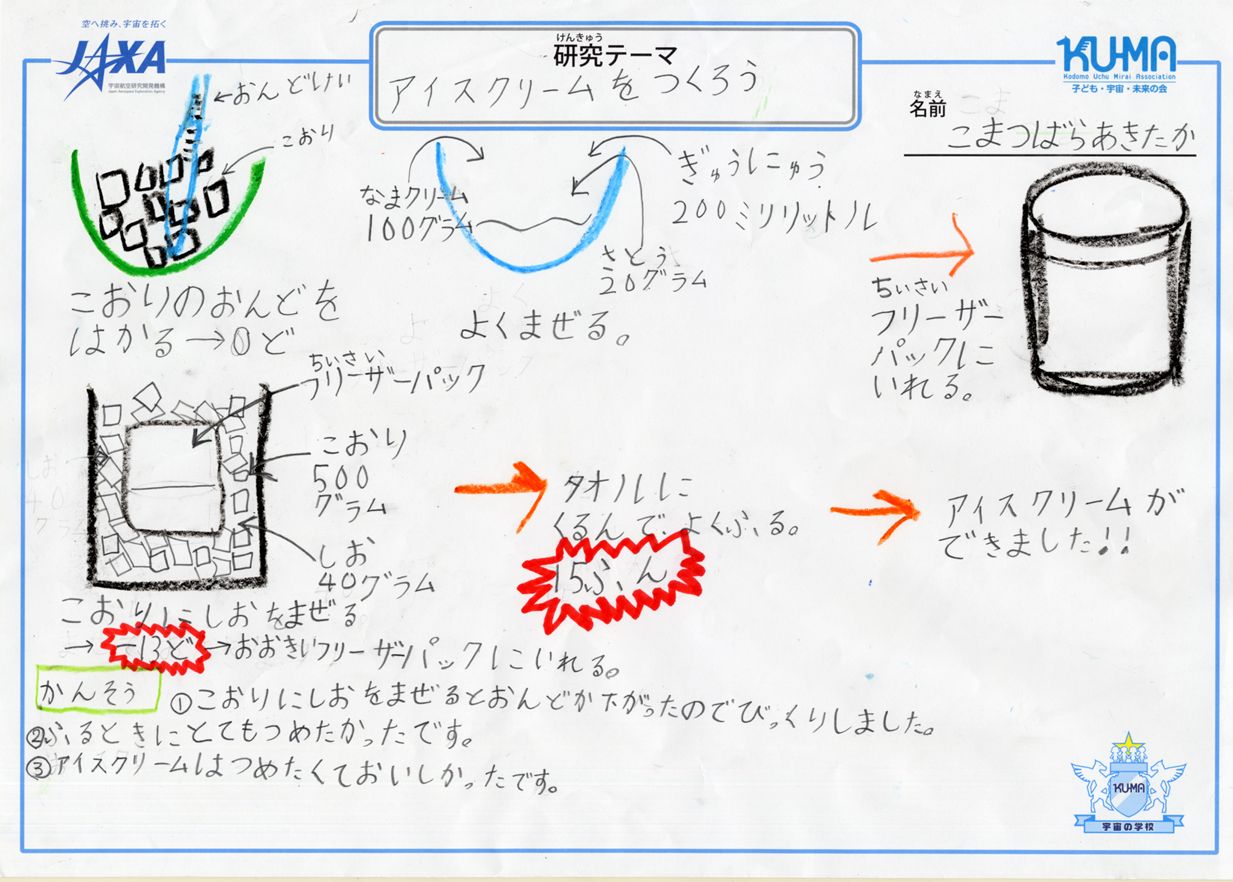 空へ挑み、宇宙を拓く
JAXA
宇宙航空研究開発機構
Japan Aerospace Exploration Agency
けんきゅう
研究テーマ
アイスクリームをつくろう
KU-MA
Kodomo Uchu Mirai Association
子ども・宇宙・未来の会
なまえ
名前
こまつばらあきたか
おんどけい
こおり
こおりのおんどを
はかる→0ど
なまクリーム
100グラム
ぎゅうにゅう
200ミリリットル
さとう
20グラム
よくまぜる。
ちいさい
フリーザー
パックに
いれる。
ちいさい
フリーザーパック
こおり
500
グラム
しお
40グラム
こおりにしおをまぜる
→-13ど→おおきいフリーザーパックにいれる。
タオルに
くるんで、よくふる。
15ふん
アイスクリームが
できました!!
かんそう
①こおりにしおをまぜるとおんどが下がったのでびっくりしました。
②ふるときにとてもつめたかったです。
③アイスクリームはつめたくておいしかったです。
KU-MA
宇宙の学校